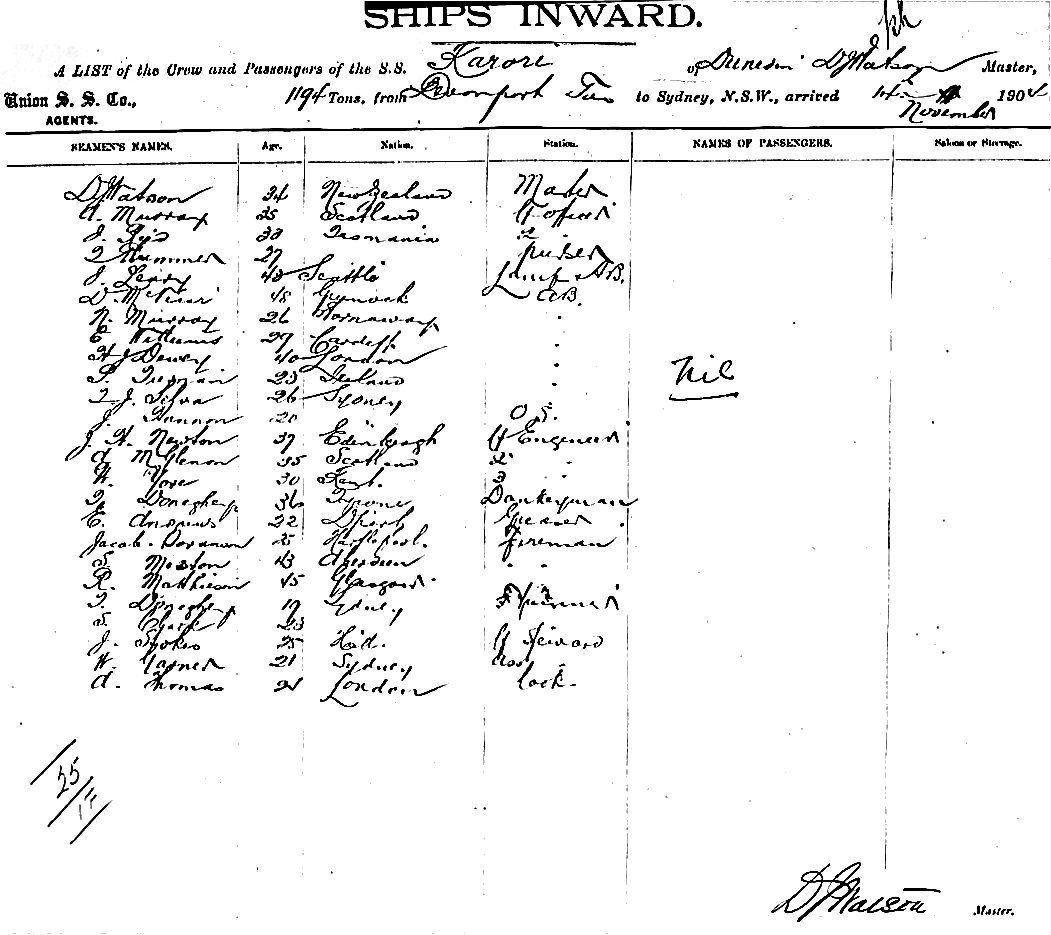 SHIPS INWARD.
A LIST of the Crew and Passengers of the S.S. Karori of Dunedin D J Watson Master,
Union S. S. Co., 1194 Tons, from Devonport Tas to Sydney, N.S.W., arrived 1904
November
AGENTS.
SEAMEN'S NAMES. Age. Nation. Station. NAMES OF PASSENGERS. Saloon or Steerage.
D J Watson 34 New Zealand Master
A. Murray 35 Scotland
J. Reid 33 Tasmania 2
27 Purser
J. Leary 43 Seattle Lamp & A.B.
D. 48 Greenock A.B.
N. Murray 26 Stornaway "
E Williams 29 Cardiff "
H J Dewey 40 London "
P. 23 Ireland "
J. Silva 26 Sydney "
J. Hannon O.S.
J. H. Newton 37 Edinburgh Engineer
A McGlenon 35 Scotland 2 "
H. Gore 30 Kent. 3 "
Donaghey 36 Tyrone Donkeyman
E. Andrews 22 Greaser
Jacob 25 Hartlepool. Fireman
S. 43 Aberdeen " "
R. Mathieson 45 Glasgow
Donaghey 19 Sydney
S. Clark 23
J. Stokes 25 Steward
H. Garner 21 Sydney
A. Thomas 24 London Cook.
Nil
25
17
D J Watson Master.